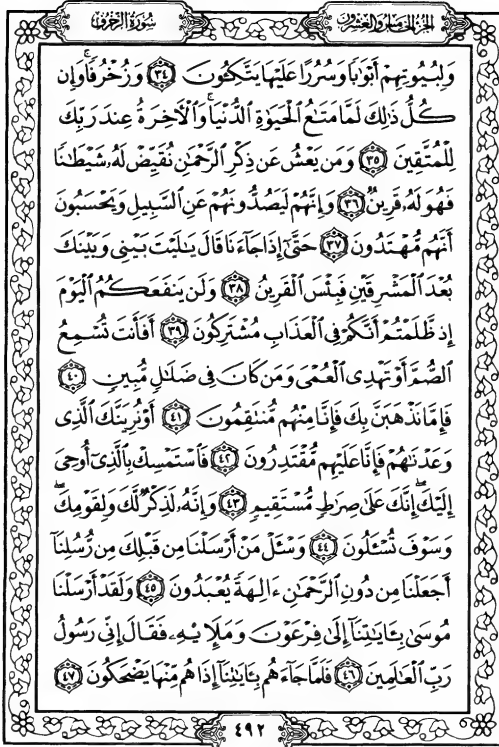 سُورَةُ الزُّخْرُفِ
الجُزْءُ الخَامِسُ وَالعِشْرُونَ
وَلِبُيُوتِهِمْ أَبْوَٰبًا وَسُرُرًا عَلَيْهَا يَتَّكِـُٔونَ ٣٤ وَزُخْرُفًا ۚ وَإِن
كُلُّ ذَٰلِكَ لَمَّا مَتَـٰعُ ٱلْحَيَوٰةِ ٱلدُّنْيَا ۚ وَٱلْـَٔاخِرَةُ عِندَ رَبِّكَ
لِلْمُتَّقِينَ ٣٥ وَمَن يَعْشُ عَن ذِكْرِ ٱلرَّحْمَـٰنِ نُقَيِّضْ لَهُۥ شَيْطَـٰنًا
فَهُوَ لَهُۥ قَرِينٌ ٣٦ وَإِنَّهُمْ لَيَصُدُّونَهُمْ عَنِ ٱلسَّبِيلِ وَيَحْسَبُونَ
أَنَّهُم مُّهْتَدُونَ ٣٧ حَتَّىٰٓ إِذَا جَآءَنَا قَالَ يَـٰلَيْتَ بَيْنِى وَبَيْنَكَ
بُعْدَ ٱلْمَشْرِقَيْنِ فَبِئْسَ ٱلْقَرِينُ ٣٨ وَلَن يَنفَعَكُمُ ٱلْيَوْمَ
إِذ ظَّلَمْتُمْ أَنَّكُمْ فِى ٱلْعَذَابِ مُشْتَرِكُونَ ٣٩ أَفَأَنتَ تُسْمِعُ
ٱلصُّمَّ أَوْ تَهْدِى ٱلْعُمْىَ وَمَن كَانَ فِى ضَلَـٰلٍ مُّبِينٍ ٤٠
فَإِمَّا نَذْهَبَنَّ بِكَ فَإِنَّا مِنْهُم مُّنتَقِمُونَ ٤١ أَوْ نُرِيَنَّكَ ٱلَّذِى
وَعَدْنَـٰهُمْ فَإِنَّا عَلَيْهِم مُّقْتَدِرُونَ ٤٢ فَٱسْتَمْسِكْ بِٱلَّذِىٓ أُوحِىَ
إِلَيْكَ ۖ إِنَّكَ عَلَىٰ صِرَٰطٍ مُّسْتَقِيمٍ ٤٣ وَإِنَّهُۥ لَذِكْرٌ لَّكَ وَلِقَوْمِكَ ۖ
وَسَوْفَ تُسْـَٔلُونَ ٤٤ وَسْـَٔلْ مَنْ أَرْسَلْنَا مِن قَبْلِكَ مِن رُّسُلِنَآ
أَجَعَلْنَا مِن دُونِ ٱلرَّحْمَـٰنِ ءَالِهَةً يُعْبَدُونَ ٤٥ وَلَقَدْ أَرْسَلْنَا
مُوسَىٰ بِـَٔايَـٰتِنَآ إِلَىٰ فِرْعَوْنَ وَمَلَإِيْهِۦ فَقَالَ إِنِّى رَسُولُ
رَبِّ ٱلْعَـٰلَمِينَ ٤٦ فَلَمَّا جَآءَهُم بِـَٔايَـٰتِنَآ إِذَا هُم مِّنْهَا يَضْحَكُونَ ٤٧
٤٩٢